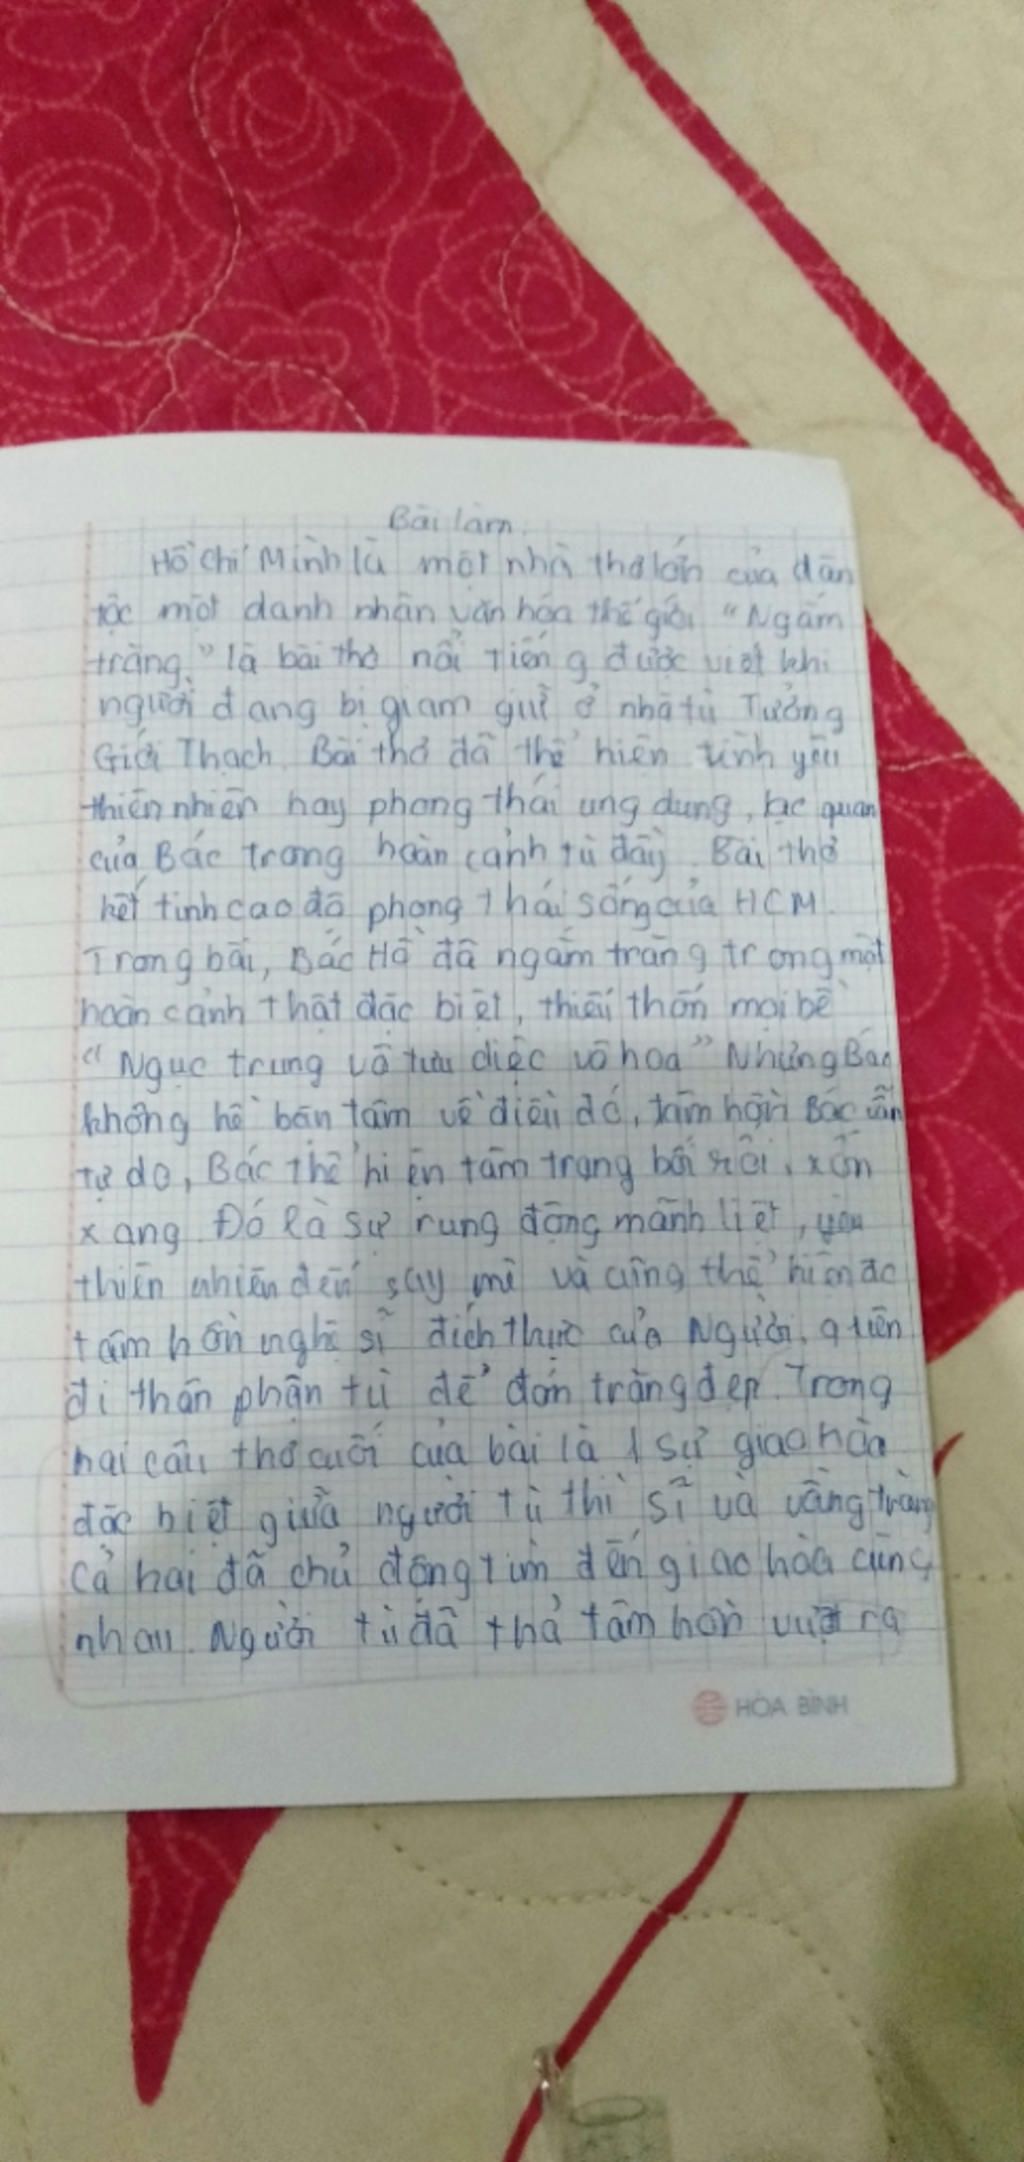 Bài làm.
Hồ Chí Minh là một nhà thơ lớn của dân
tộc một danh nhân văn hóa thế giới "Ngắm
trăng" là bài thơ nổi tiếng được viết khi
người đang bị giam giữ ở nhà tù Tưởng
Giới Thạch. Bài thơ đã thể hiện tình yêu
thiên nhiên hay phong thái ung dung, lạc quan
của Bác trong hoàn cảnh tù đày. Bài thơ
kết tinh cao độ phong thái sống của HCM.
Trong bài, Bác Hồ đã ngắm trăng trong một
hoàn cảnh thật đặc biệt, thiếu thốn mọi bề
"Ngục trung vô tửu diệc vô hoa" Nhưng Bác
không hề bận tâm về điều đó, tâm hồn Bác vẫn
tự do, Bác thể hiện tâm trạng bối rối, xốn
xang. Đó là sự rung động mãnh liệt, yêu
thiên nhiên đến say mê và cũng thể hiện
tâm hồn nghệ sĩ đích thực của Người, quên
đi thân phận tù để đón trăng đẹp. Trong
hai câu thơ cuối của bài là 1 sự giao hòa
đặc biệt giữa người tù thi sĩ và vầng trăng
Cả hai đã chủ động tìm đến giao hòa cùng
nhau. Người tù đã thả tâm hồn vượt ra
HÒA BÌNH